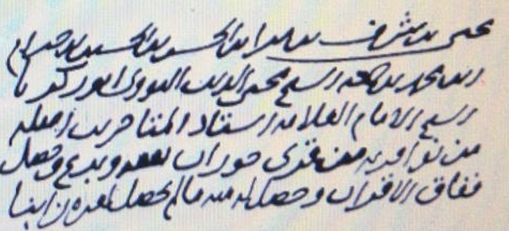 يحيى بن شرف بن مرا بن الحسن بن الحسين بن حزام
بن محمد بن جمعه الشيخ محيى الدين النووى ابو زكريا
الشيخ الامام العلامه استاد المتاخرين اصله
من نوا قريه من قرى حوران تفقه وبرع وحصل
ففاق الاقران وحصل له منه ما لم يحصل لغيره من ابنا